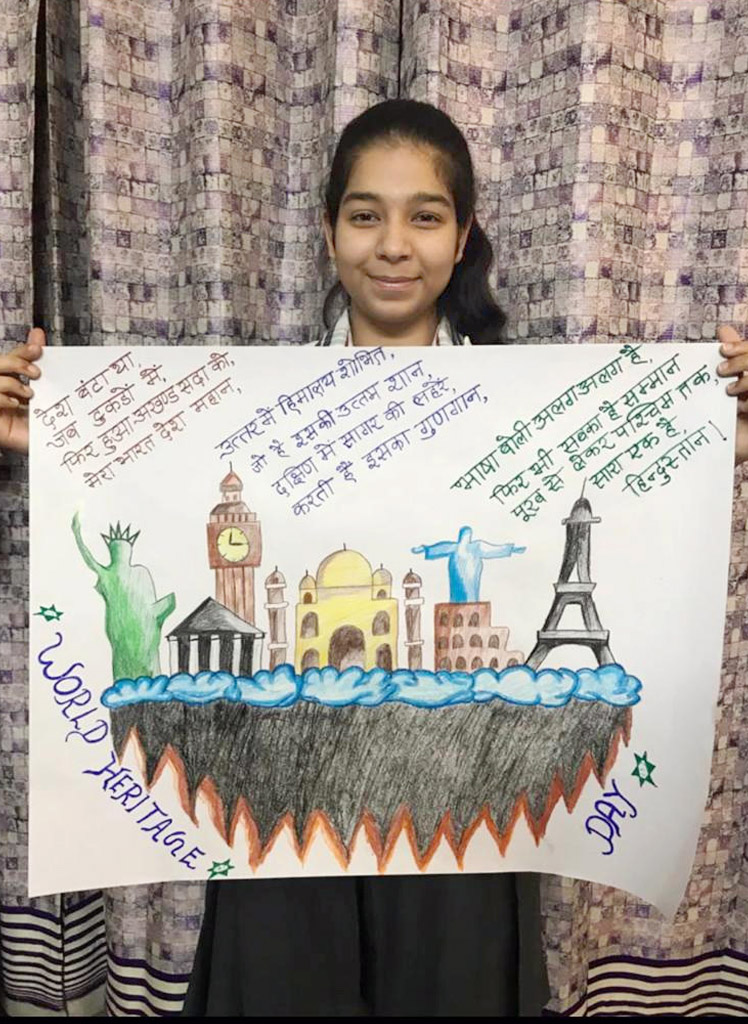 देश बंटा था,
जब टुकडों में,
फिर हुआ अखण्ड सदा को,
मेरा भारत देश महान,
उत्तर में हिमालय शोभित,
जो है इसकी उत्तम शान,
दक्षिण में सागर की लहरें,
करती हैं इसका गुणगान,
भाषा बोली अलग अलग है,
फिर भी सबका है सम्मान
पूरब से लेकर पश्चिम तक,
सारा एक है,
हिन्दुस्तान!
WORLD HERITAGE
DAY